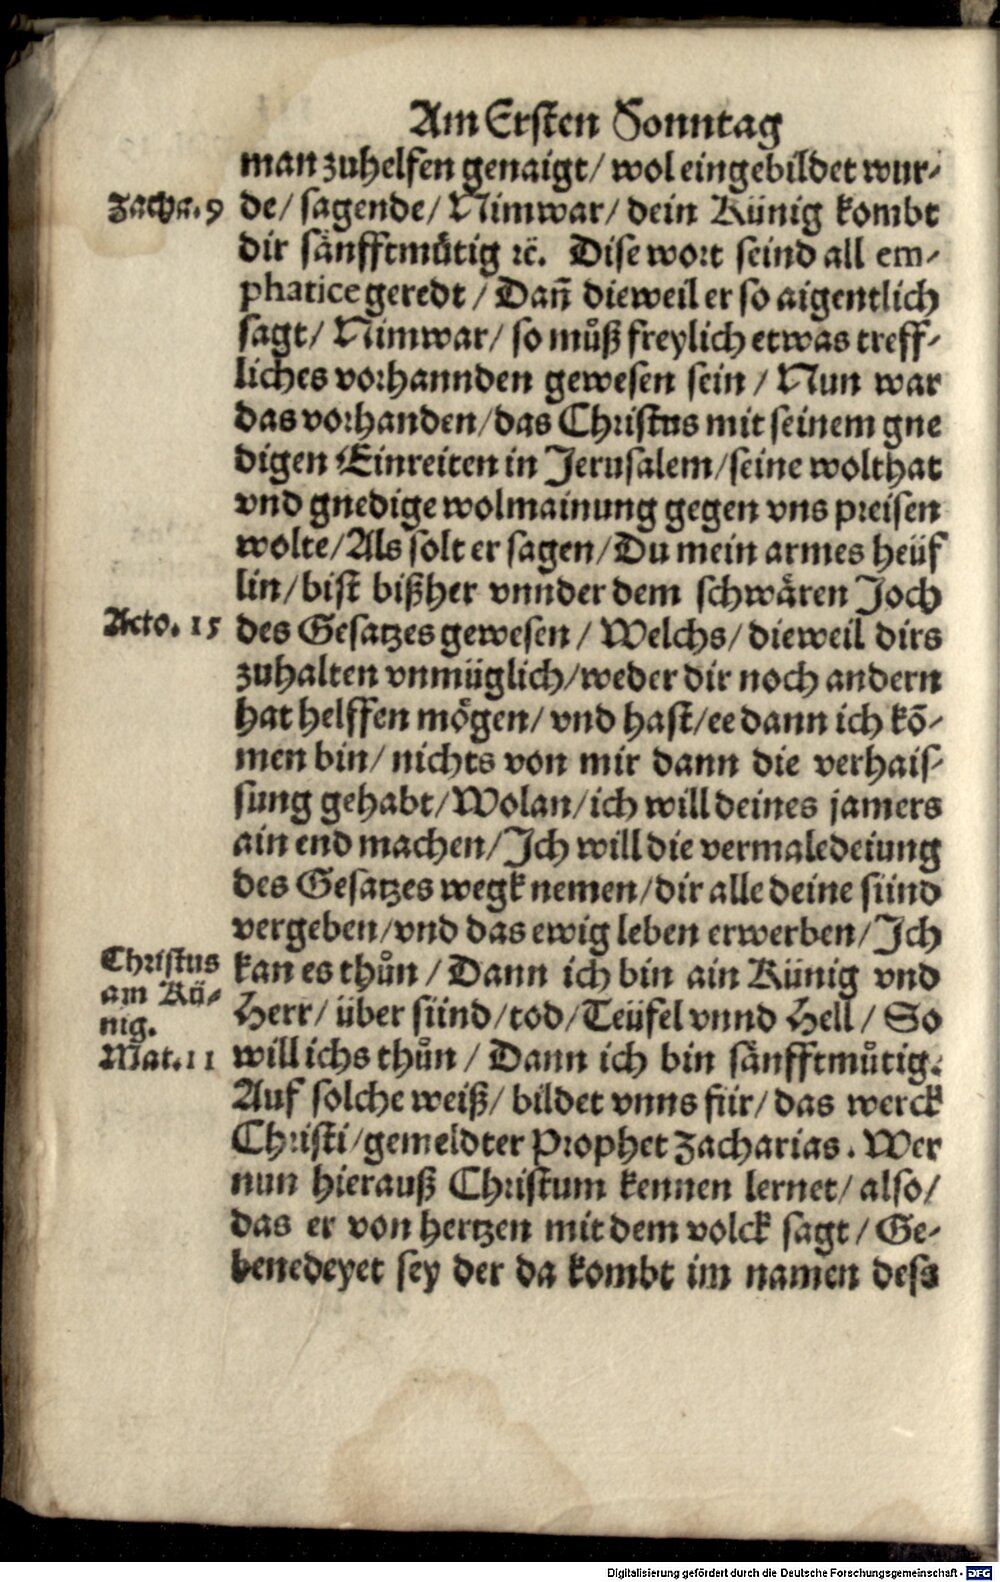 Am Ersten Sonntag
man zuhelfen genaigt/ wol eingebildet wur-
Zacha. 9
de/ sagende/ Nimwar/ dein Künig kombt
dir sänfftmůtig ꝛc̄. Dise wort seind all em-
phatice geredt / Dañ dieweil er so aigentlich
sagt/ Nimwar/ so můß freylich etwas treff-
liches vorhannden gewesen sein / Nun war
das vorhanden/das Christus mit seinem gne
digen Einreiten in Jerusalem/seine wolthat
vnd gnedige wolmainung gegen vns preisen
wolte/Als solt er sagen/Du mein armes heüf
lin/bist bißher vnnder dem schwären Joch
Acto. 15
des Gesatzes gewesen / Welchs/ dieweil dirs
zuhalten vnmüglich/weder dir noch andern
hat helffen mögen/ vnd hast/ee dann ich kō-
men bin/ nichts von mir dann die verhais-
sung gehabt/Wolan/ich will deines jamers
ain end machen/Ich will die vermaledeiung
des Gesatzes wegk nemen/dir alle deine sünd
vergeben/vnd das ewig leben erwerben/Ich
Christus
am Kü-
nig.
Mat. 11
kan es thůn / Dann ich bin ain Künig vnd
Herr/ über sünd/tod/Teüfel vnnd Hell / So
will ichs thůn / Dann ich bin sänfftmůtig.
Auf solche weiß/ bildet vnns für/ das werck
Christi/gemeldter Prophet Zacharias. Wer
nun hierauß Christum kennen lernet/ also/
das er von hertzen mit dem volck sagt / Ge-
benedeyet sey der da kombt im namen dess
Digitalisierung gefördert durch die Deutsche Forschungsgemeinschaft - DFG